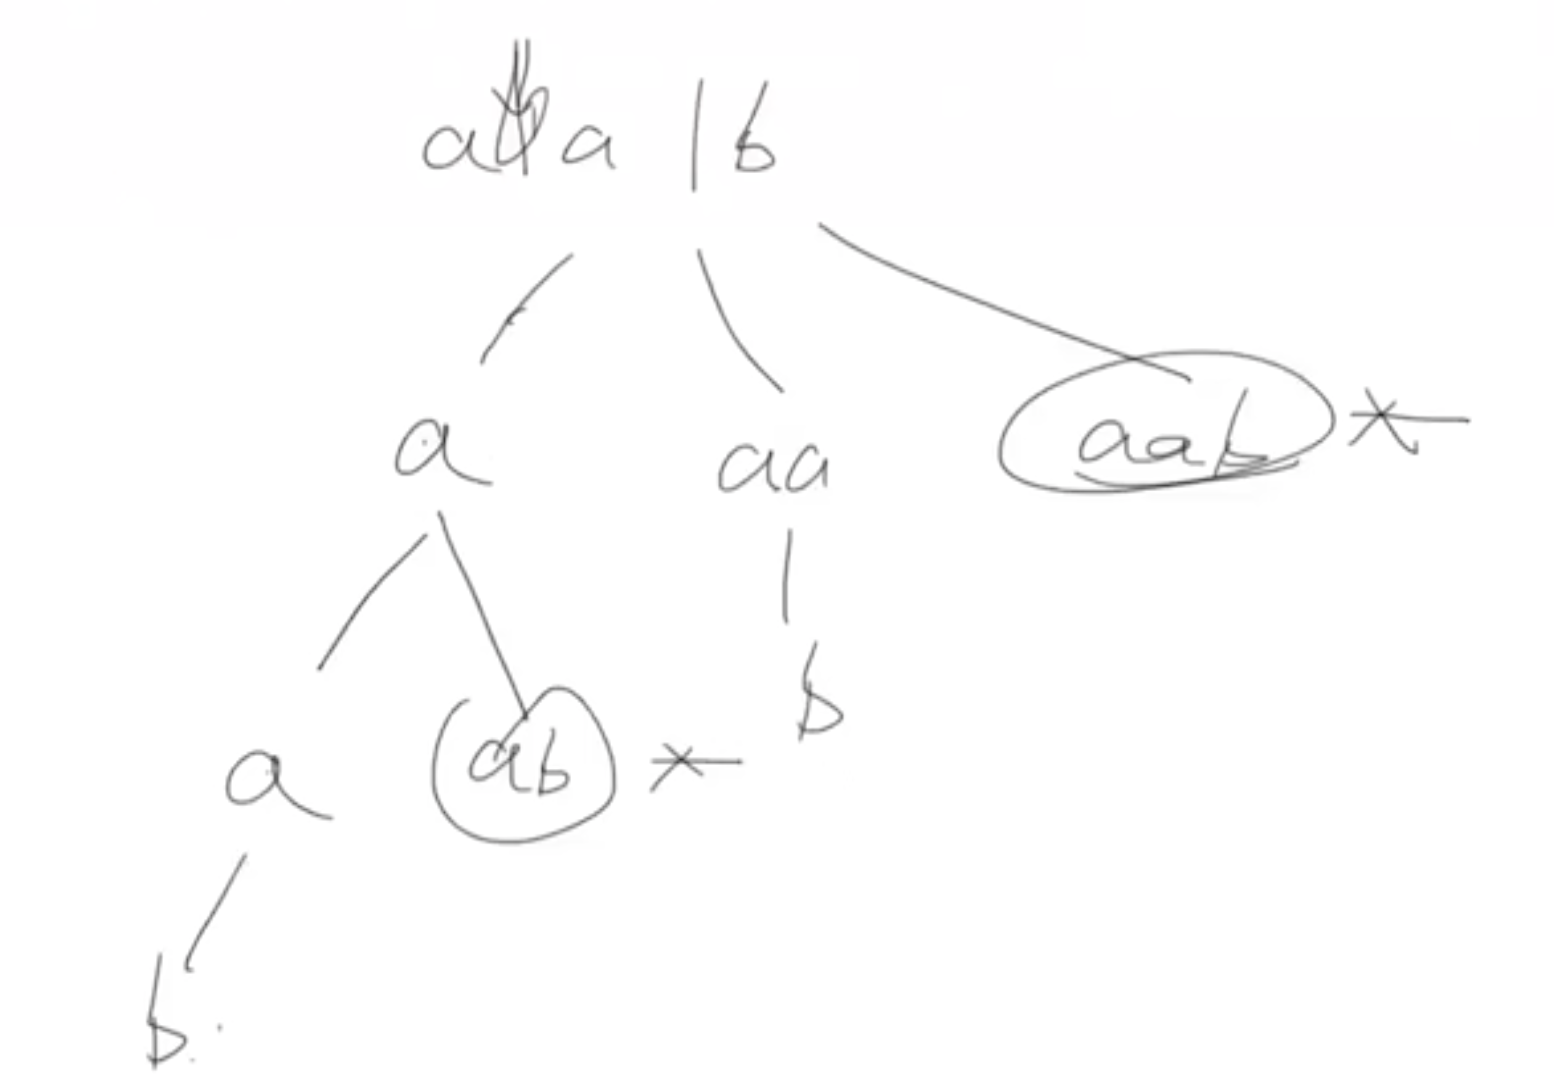 a a | b
a aa aab
a ab b
b